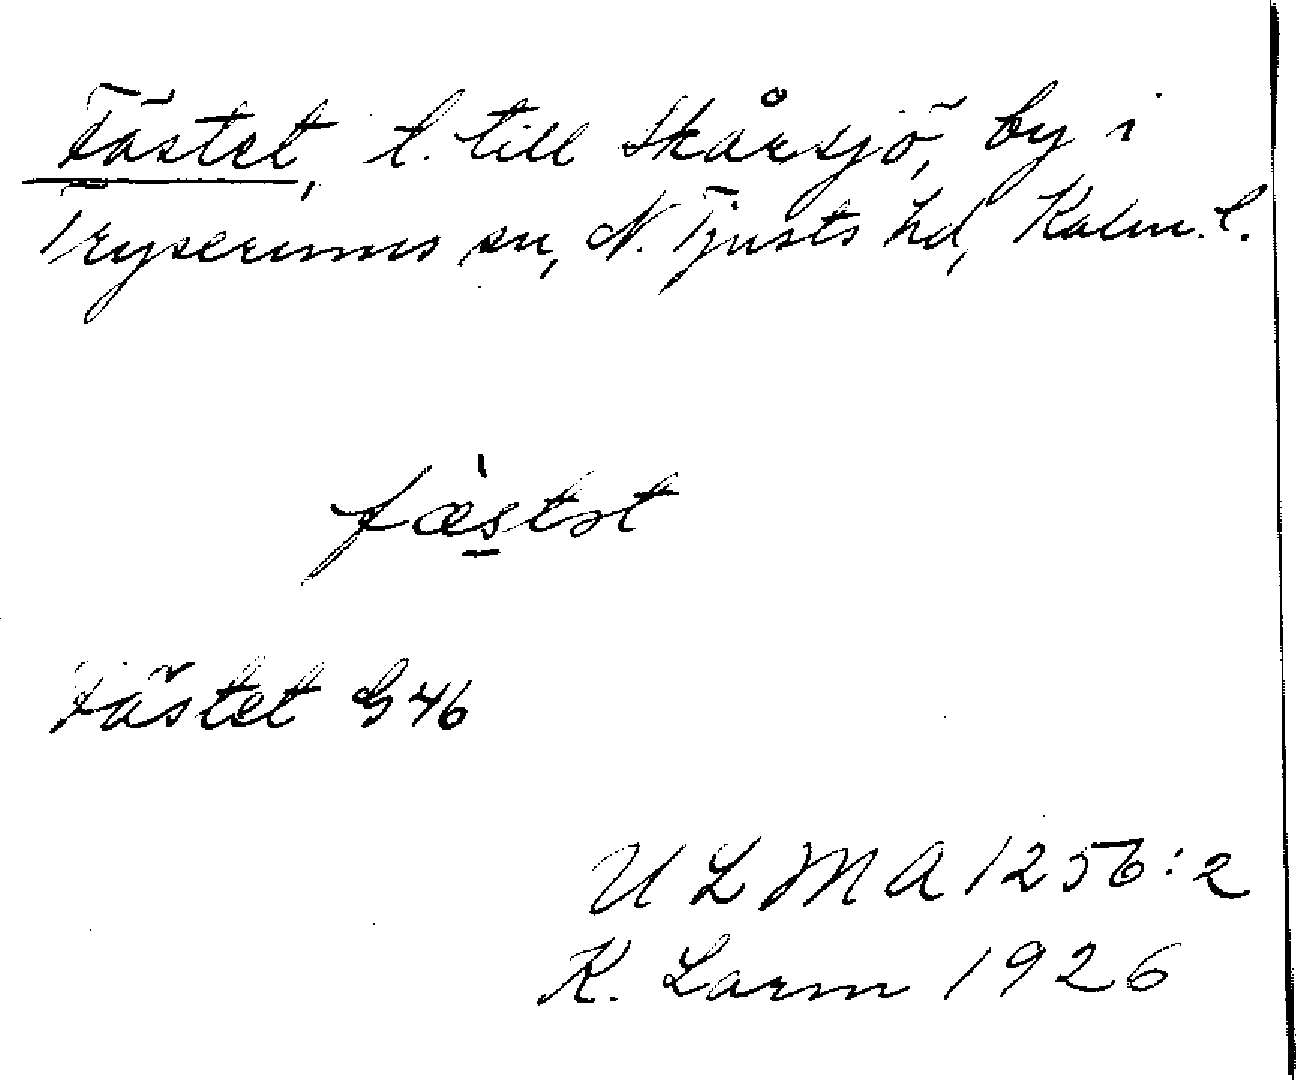 Fästet, l. till Skårsjö, by i
Tryserums sn, N. Tjusts hd, Kalm. l.
fæ̀stət
Fästet G 46
ULMA 1256:2
K. Larm 1926